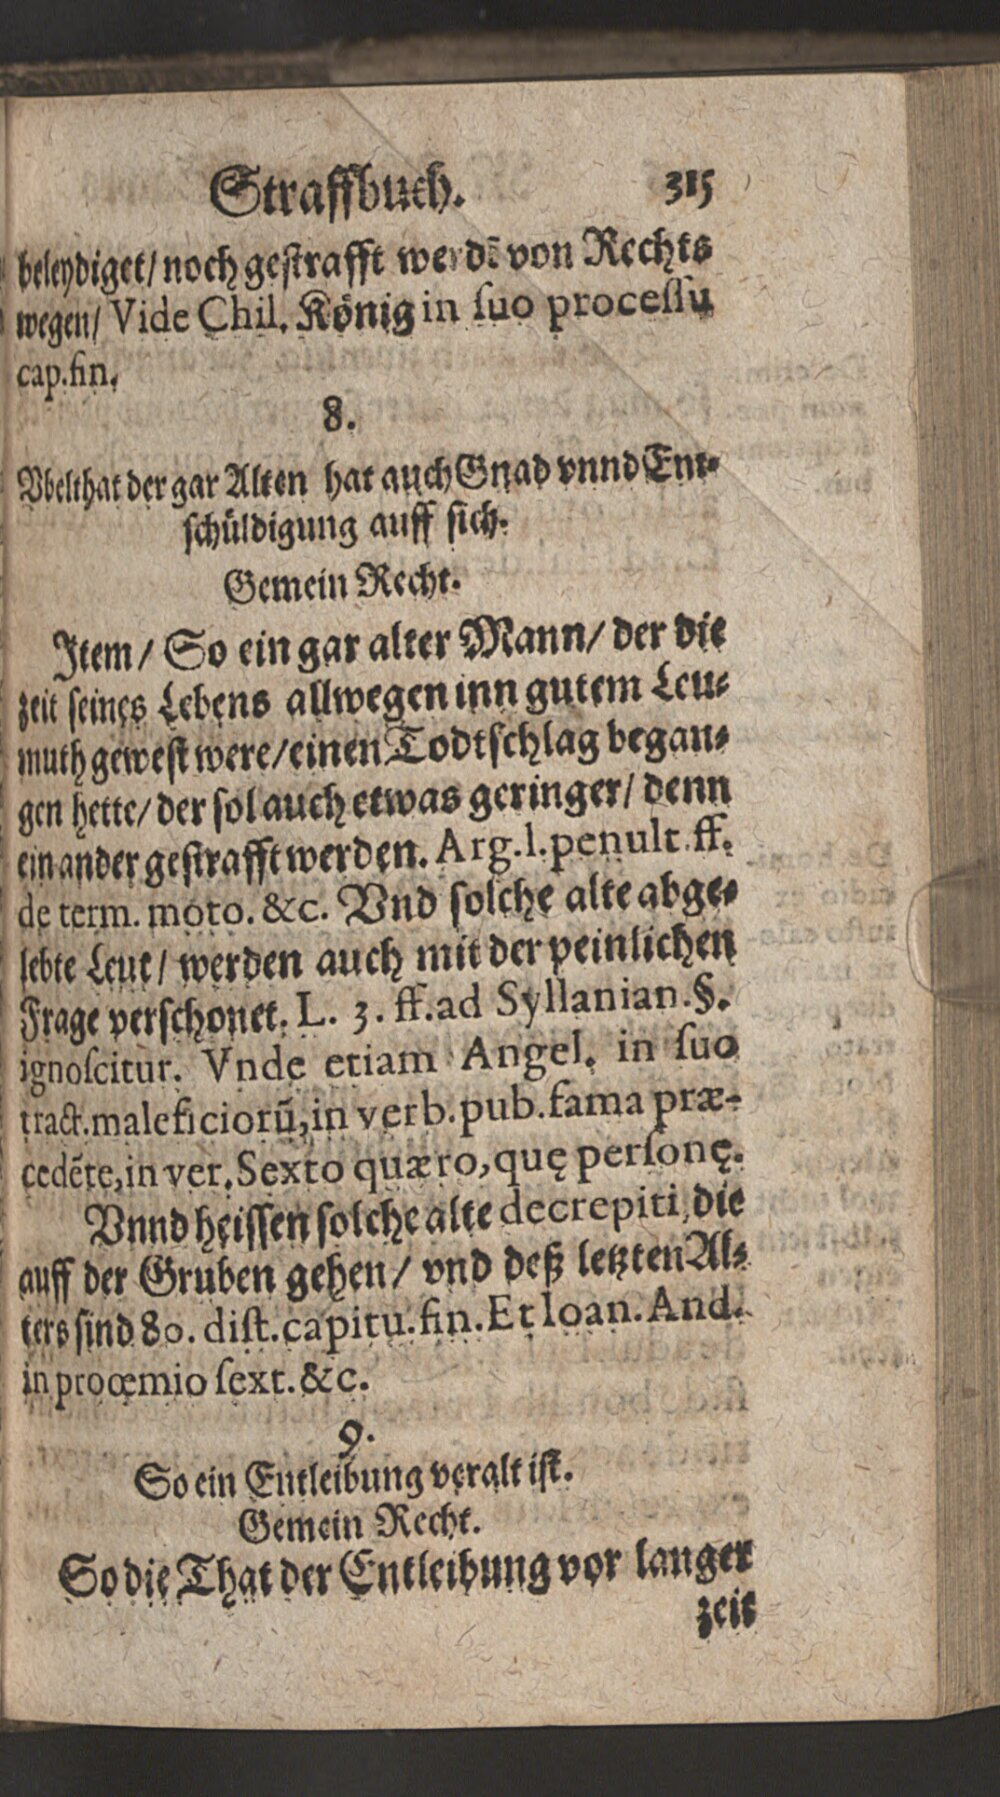 Straffbuch. 315
beleydiget/ noch gestrafft werdē von Rechts
wegen/ Vide Chil. König in ſuo proceſſu
cap. fin.
8.
Vbelthat der gar Alten hat auch Gnad vnnd Ent-
schüldigung auff sich.
Gemein Recht.
Item/ So ein gar alter Mann/ der die
zeit seines Lebens allwegen inn gutem Leu-
muth gewest were/ einen Todtschlag began-
gen hette/ der sol auch etwas geringer/ denn
ein ander gestrafft werden. Arg. l. penult. ff.
de term. moto. &c. Vnd solche alte abge-
lebte Leut/ werden auch mit der peinlichen
Frage verschonet. L. 3. ff. ad Syllanian. §.
ignoſcitur. Vnde etiam Angel. in ſuo
tract. maleficiorū, in verb. pub. fama præ-
cedēte, in ver. Sexto quæro, quę perſonę.
Vnnd heissen solche alte decrepiti, die
auff der Gruben gehen/ vnd deß letzten Al-
ters sind 80. diſt. capitu. fin. Et Ioan. And.
in proœmio ſext. &c.
9.
So ein Entleibung veralt ist.
Gemein Recht.
So die That der Entleibung vor langer
zeit